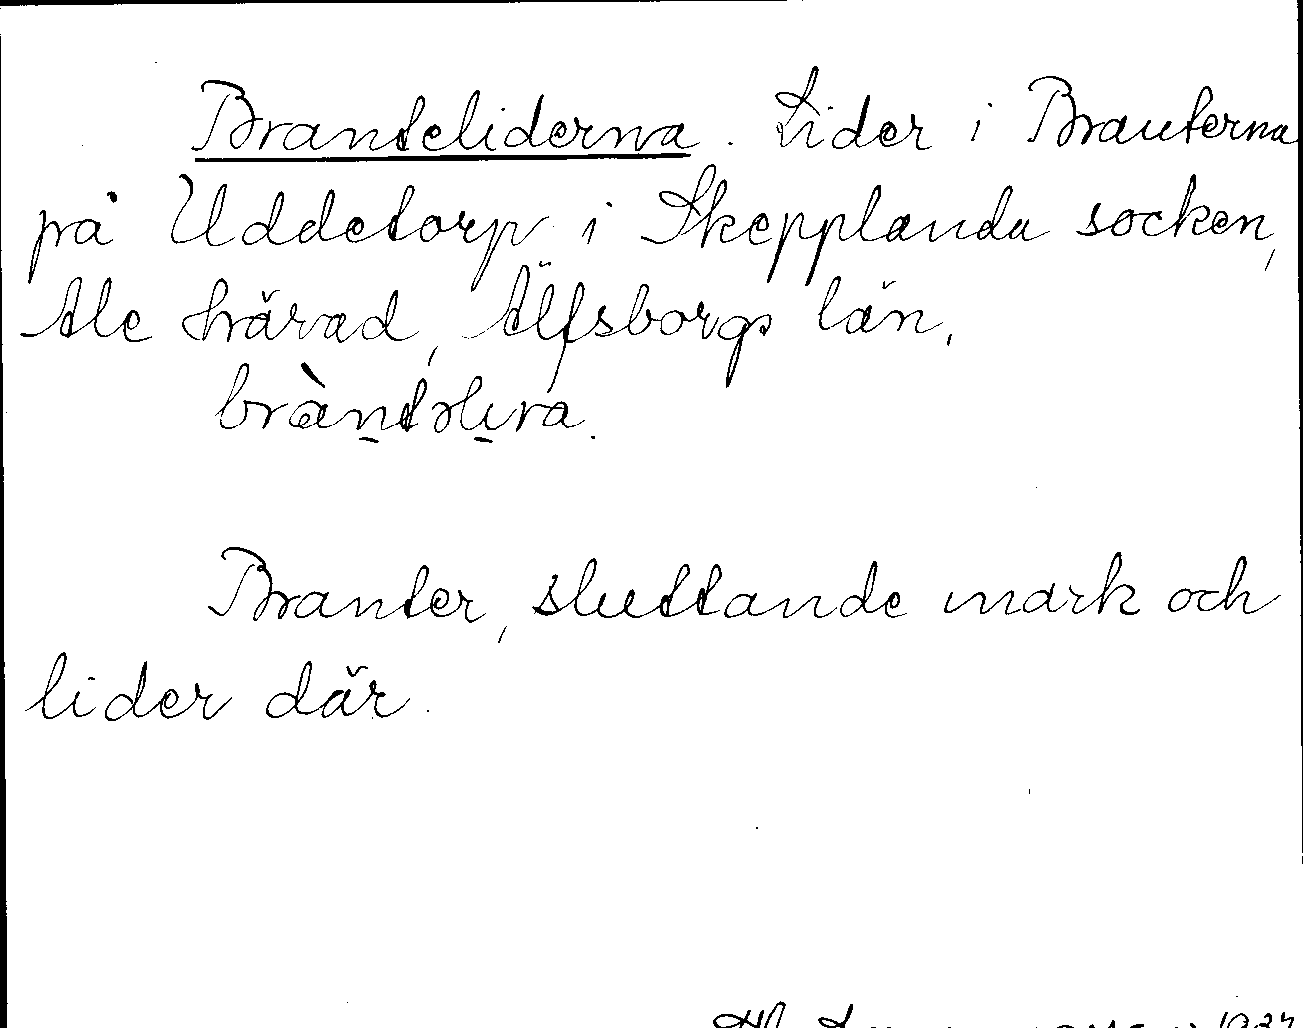 Branteliderna. Lider i Branterna
på Uddetorp i Skepplanda socken,
Ale härad, Älfsborgs län.
Branter, sluttande mark och
lider där.